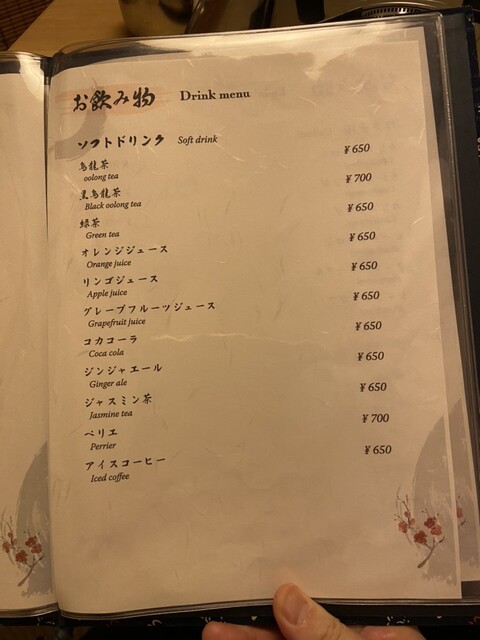 お飲み物 Drink menu
ソフトドリンク Soft drink
烏龍茶 ¥650
oolong tea
黒烏龍茶 ¥700
Black oolong tea
緑茶 ¥650
Green tea
オレンジジュース ¥650
Orange juice
リンゴジュース ¥650
Apple juice
グレープフルーツジュース ¥650
Grapefruit juice
コカコーラ ¥650
Coca cola
ジンジャエール ¥650
Ginger ale
ジャスミン茶 ¥650
Jasmine tea
ペリエ ¥700
Perrier
アイスコーヒー ¥650
Iced coffee